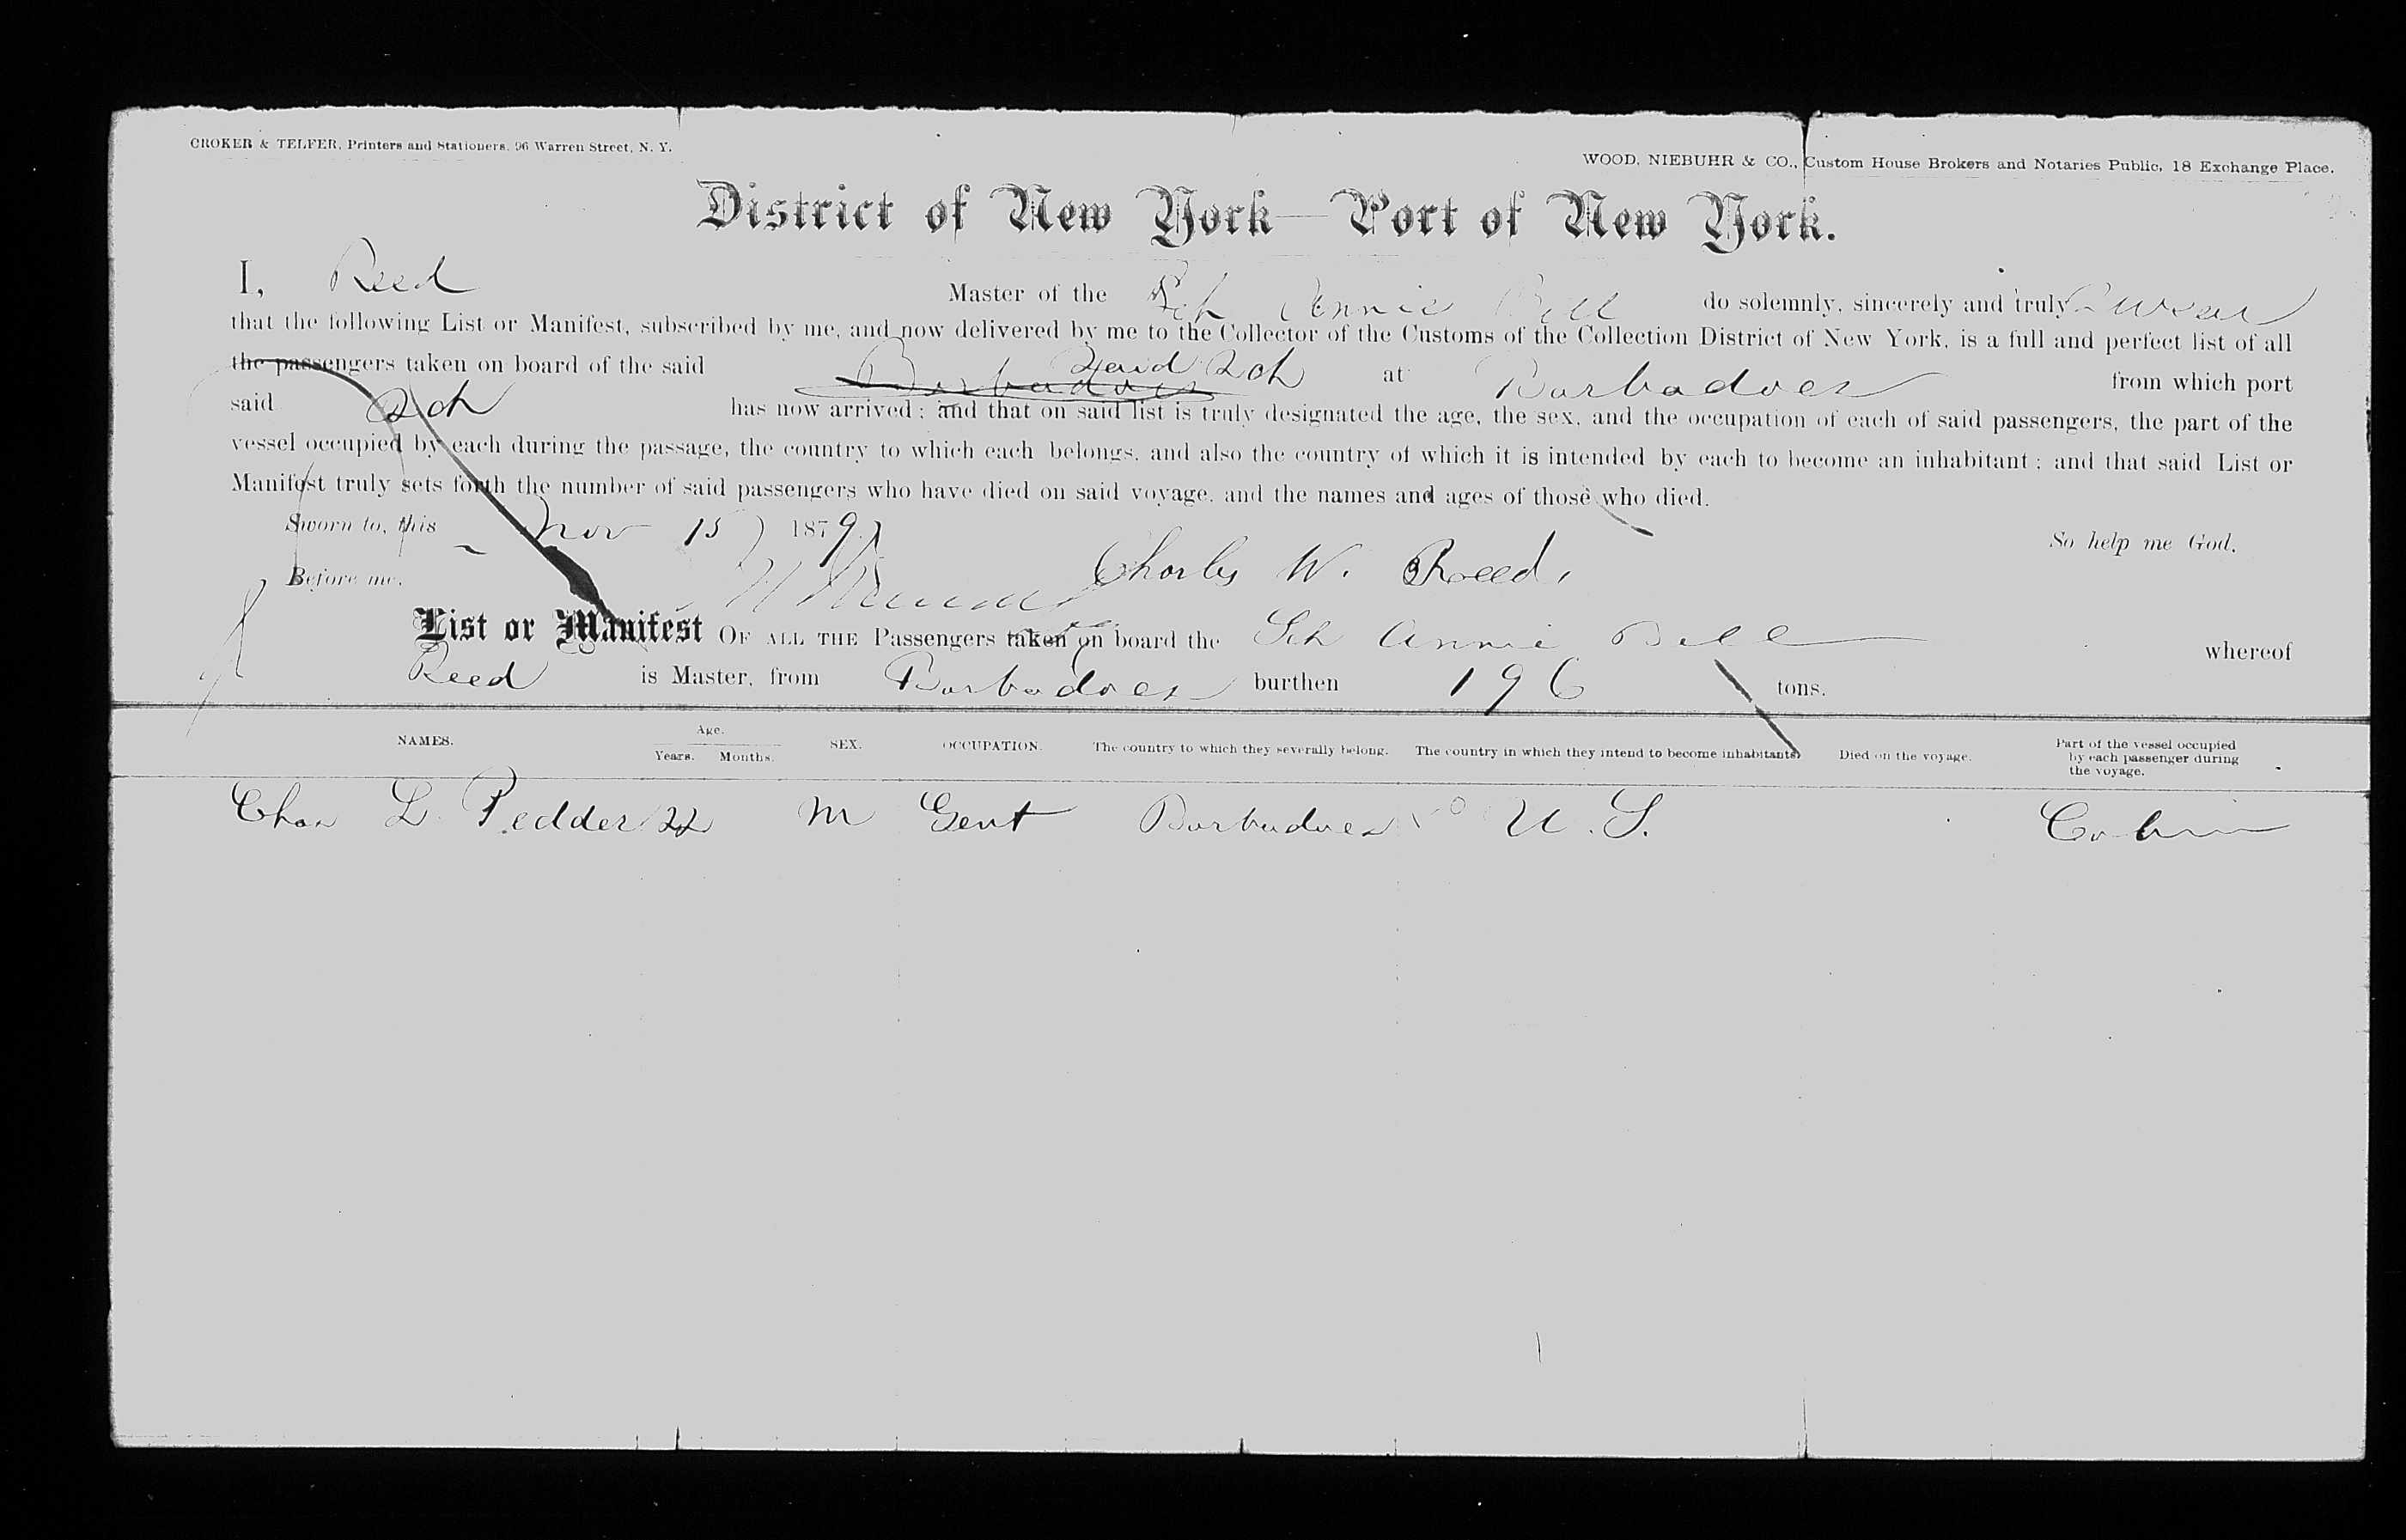 CROKER & TELFER, Printers and Stationers, 96 Warren Street, N. Y.
WOOD, NIEBUHR & CO., Custom House Brokers and Notaries Public, 18 Exchange Place.
District of New York—Port of New York.
I, Reed Master of the Sch Annie Bell do solemnly, sincerely and truly swear
that the following List or Manifest, subscribed by me, and now delivered by me to the Collector of the Customs of the Collection District of New York, is a full and perfect list of all
the passengers taken on board of the said Barbadoes said Sch at Barbadoes from which port
said Sch has now arrived; and that on said list is truly designated the age, the sex, and the occupation of each of said passengers, the part of the
vessel occupied by each during the passage, the country to which each belongs, and also the country of which it is intended by each to become an inhabitant; and that said List or
Manifest truly sets forth the number of said passengers who have died on said voyage, and the names and ages of those who died.
Sworn to, this Nov 15 1879 So help me God.
Before me, Charles W. Reed
List or Manifest OF ALL THE Passengers taken on board the Sch Annie Bell whereof
Reed is Master, from Barbadoes burthen 196 tons.
NAMES. Age. Years. Months. SEX. OCCUPATION. The country to which they severally belong. The country in which they intend to become inhabitants. Died on the voyage. Part of the vessel occupied by each passenger during the voyage.
Chas L. Pedder 22 M Gent Barbadoes U.S. Cabin